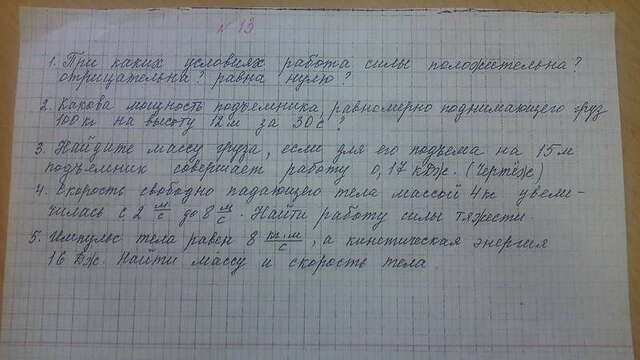 № 13
1. При каких условиях работа силы положительна?
отрицательна? равна нулю?
2. Какова мощность подъемника, равномерно поднимающего груз
100 кг на высоту 12 м за 30 с?
3. Найдите массу груза, если для его подъема на 15 м
подъемник совершает работу 0,17 кДж. (Чертёж)
4. Скорость свободно падающего тела массой 4 кг увели-
чилась с 2 м/с до 8 м/с. Найти работу силы тяжести.
5. Импульс тела равен 8 кг·м/с, а кинетическая энергия
16 Дж. Найти массу и скорость тела.